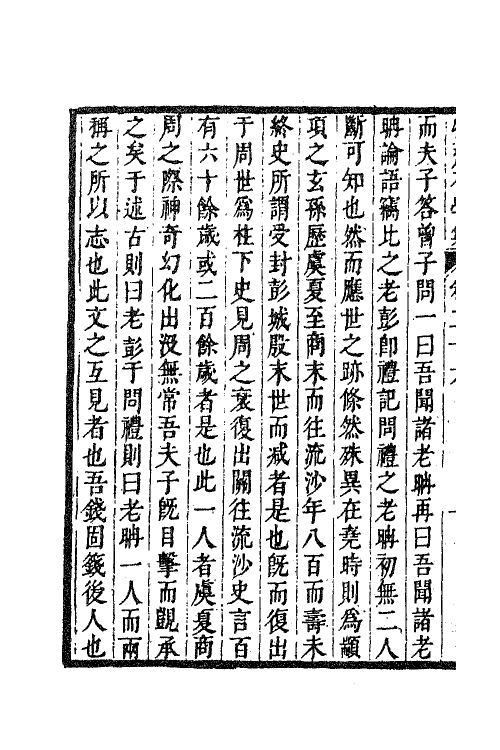 而夫子答曾子問一曰吾聞諸老聃再曰吾聞諸老
聃論語竊比之老彭卽禮記問禮之老聃初無二人
斷可知也然而應世之跡倏然殊異在堯時則為顓
頊之玄孫歷虞夏至商末而往流沙年八百而壽未
終史所謂受封彭城殷末世而滅者是也旣而復出
于周世為柱下史見周之衰復出關往流沙史言百
有六十餘歲或二百餘歲者是也此一人者虞夏商
周之際神奇幻化出沒無常吾夫子旣目擊而覶承
之矣于述古則曰老彭于問禮則曰老聃一人而兩
稱之所以志也此文之互見者也吾錢固籛後人也